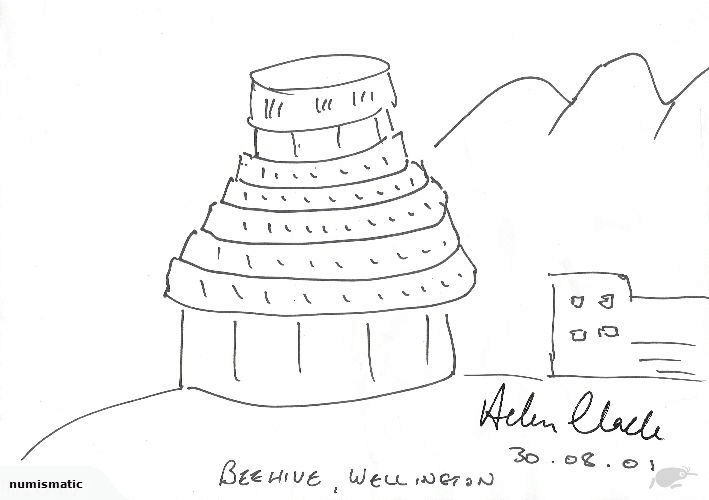 Helen Clark
30.08.01
BEEHIVE, WELLINGTON
numismatic